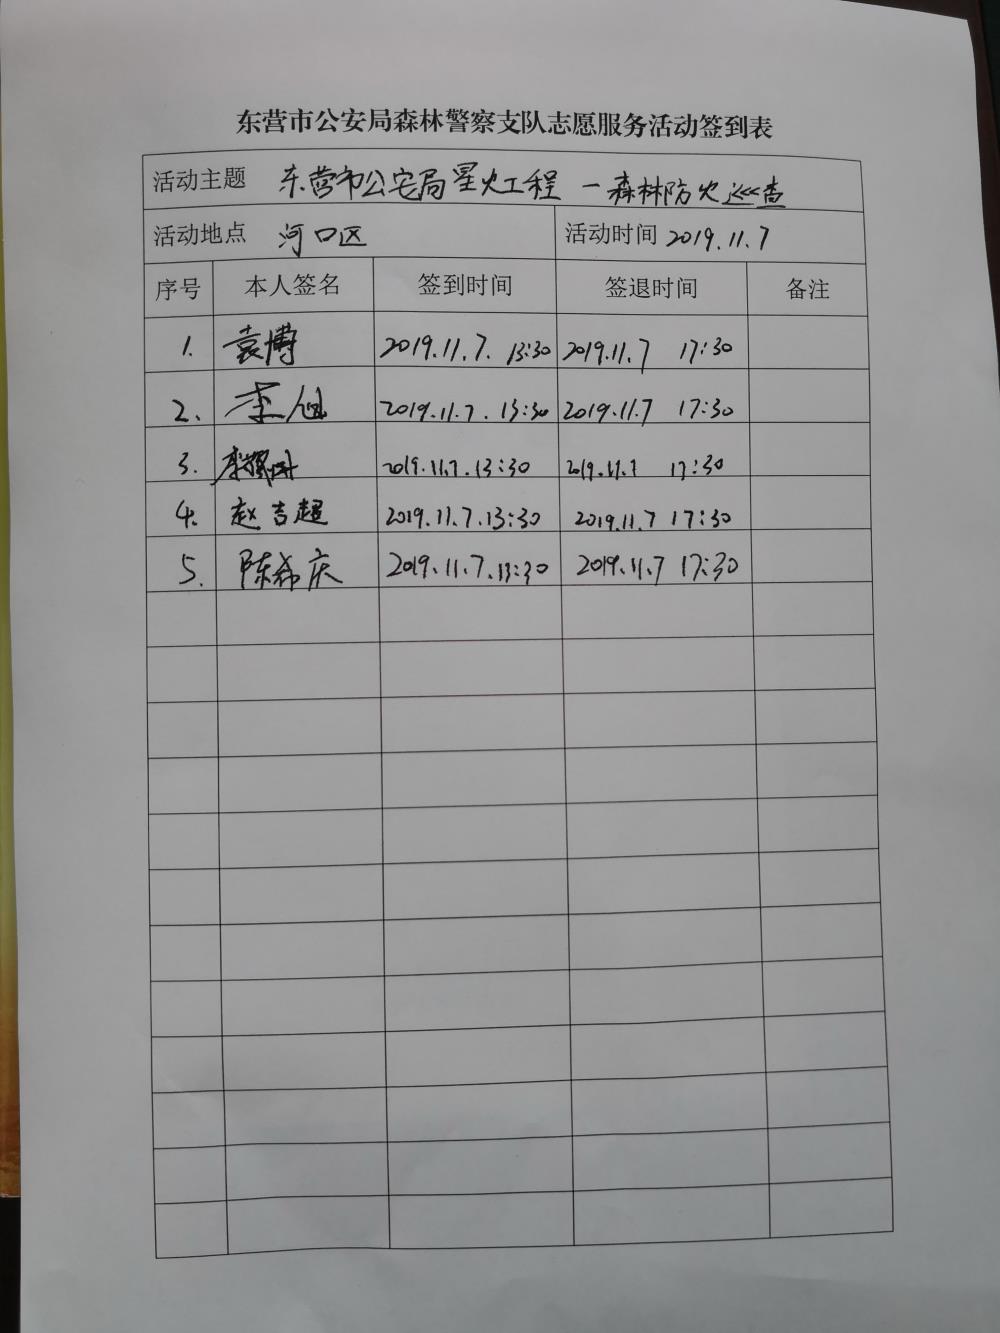 东营市公安局森林警察支队志愿服务活动签到表
活动主题 东营市公安局星火工程 一森林防火巡查
活动地点 河口区 活动时间 2019.11.7
序号 本人签名 签到时间 签退时间 备注
1. 袁博 2019.11.7. 13:30 2019.11.7 17:30
2、 李旭 2019.11.7. 13:30 2019.11.7 17:30
3. 2019.11.7.13:30 2019.11.7 17:30
4. 赵吉超 2019.11.7.13:30 2019.11.7 17:30
5. 陈希庆 2019.11.7.13:30 2019.11.7 17:30